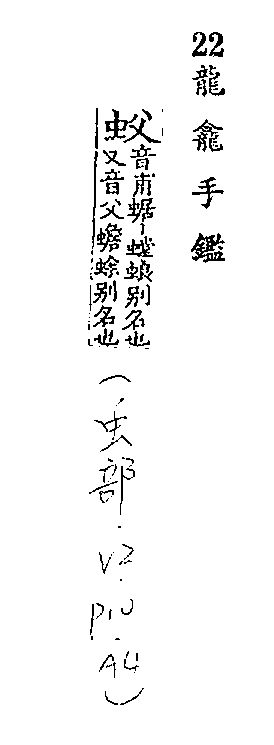 22龍龕手鑑
蚥音甫蜛丨螳蜋別名也
又音父蟾蜍別名也
(虫部.V2.P10.A4)